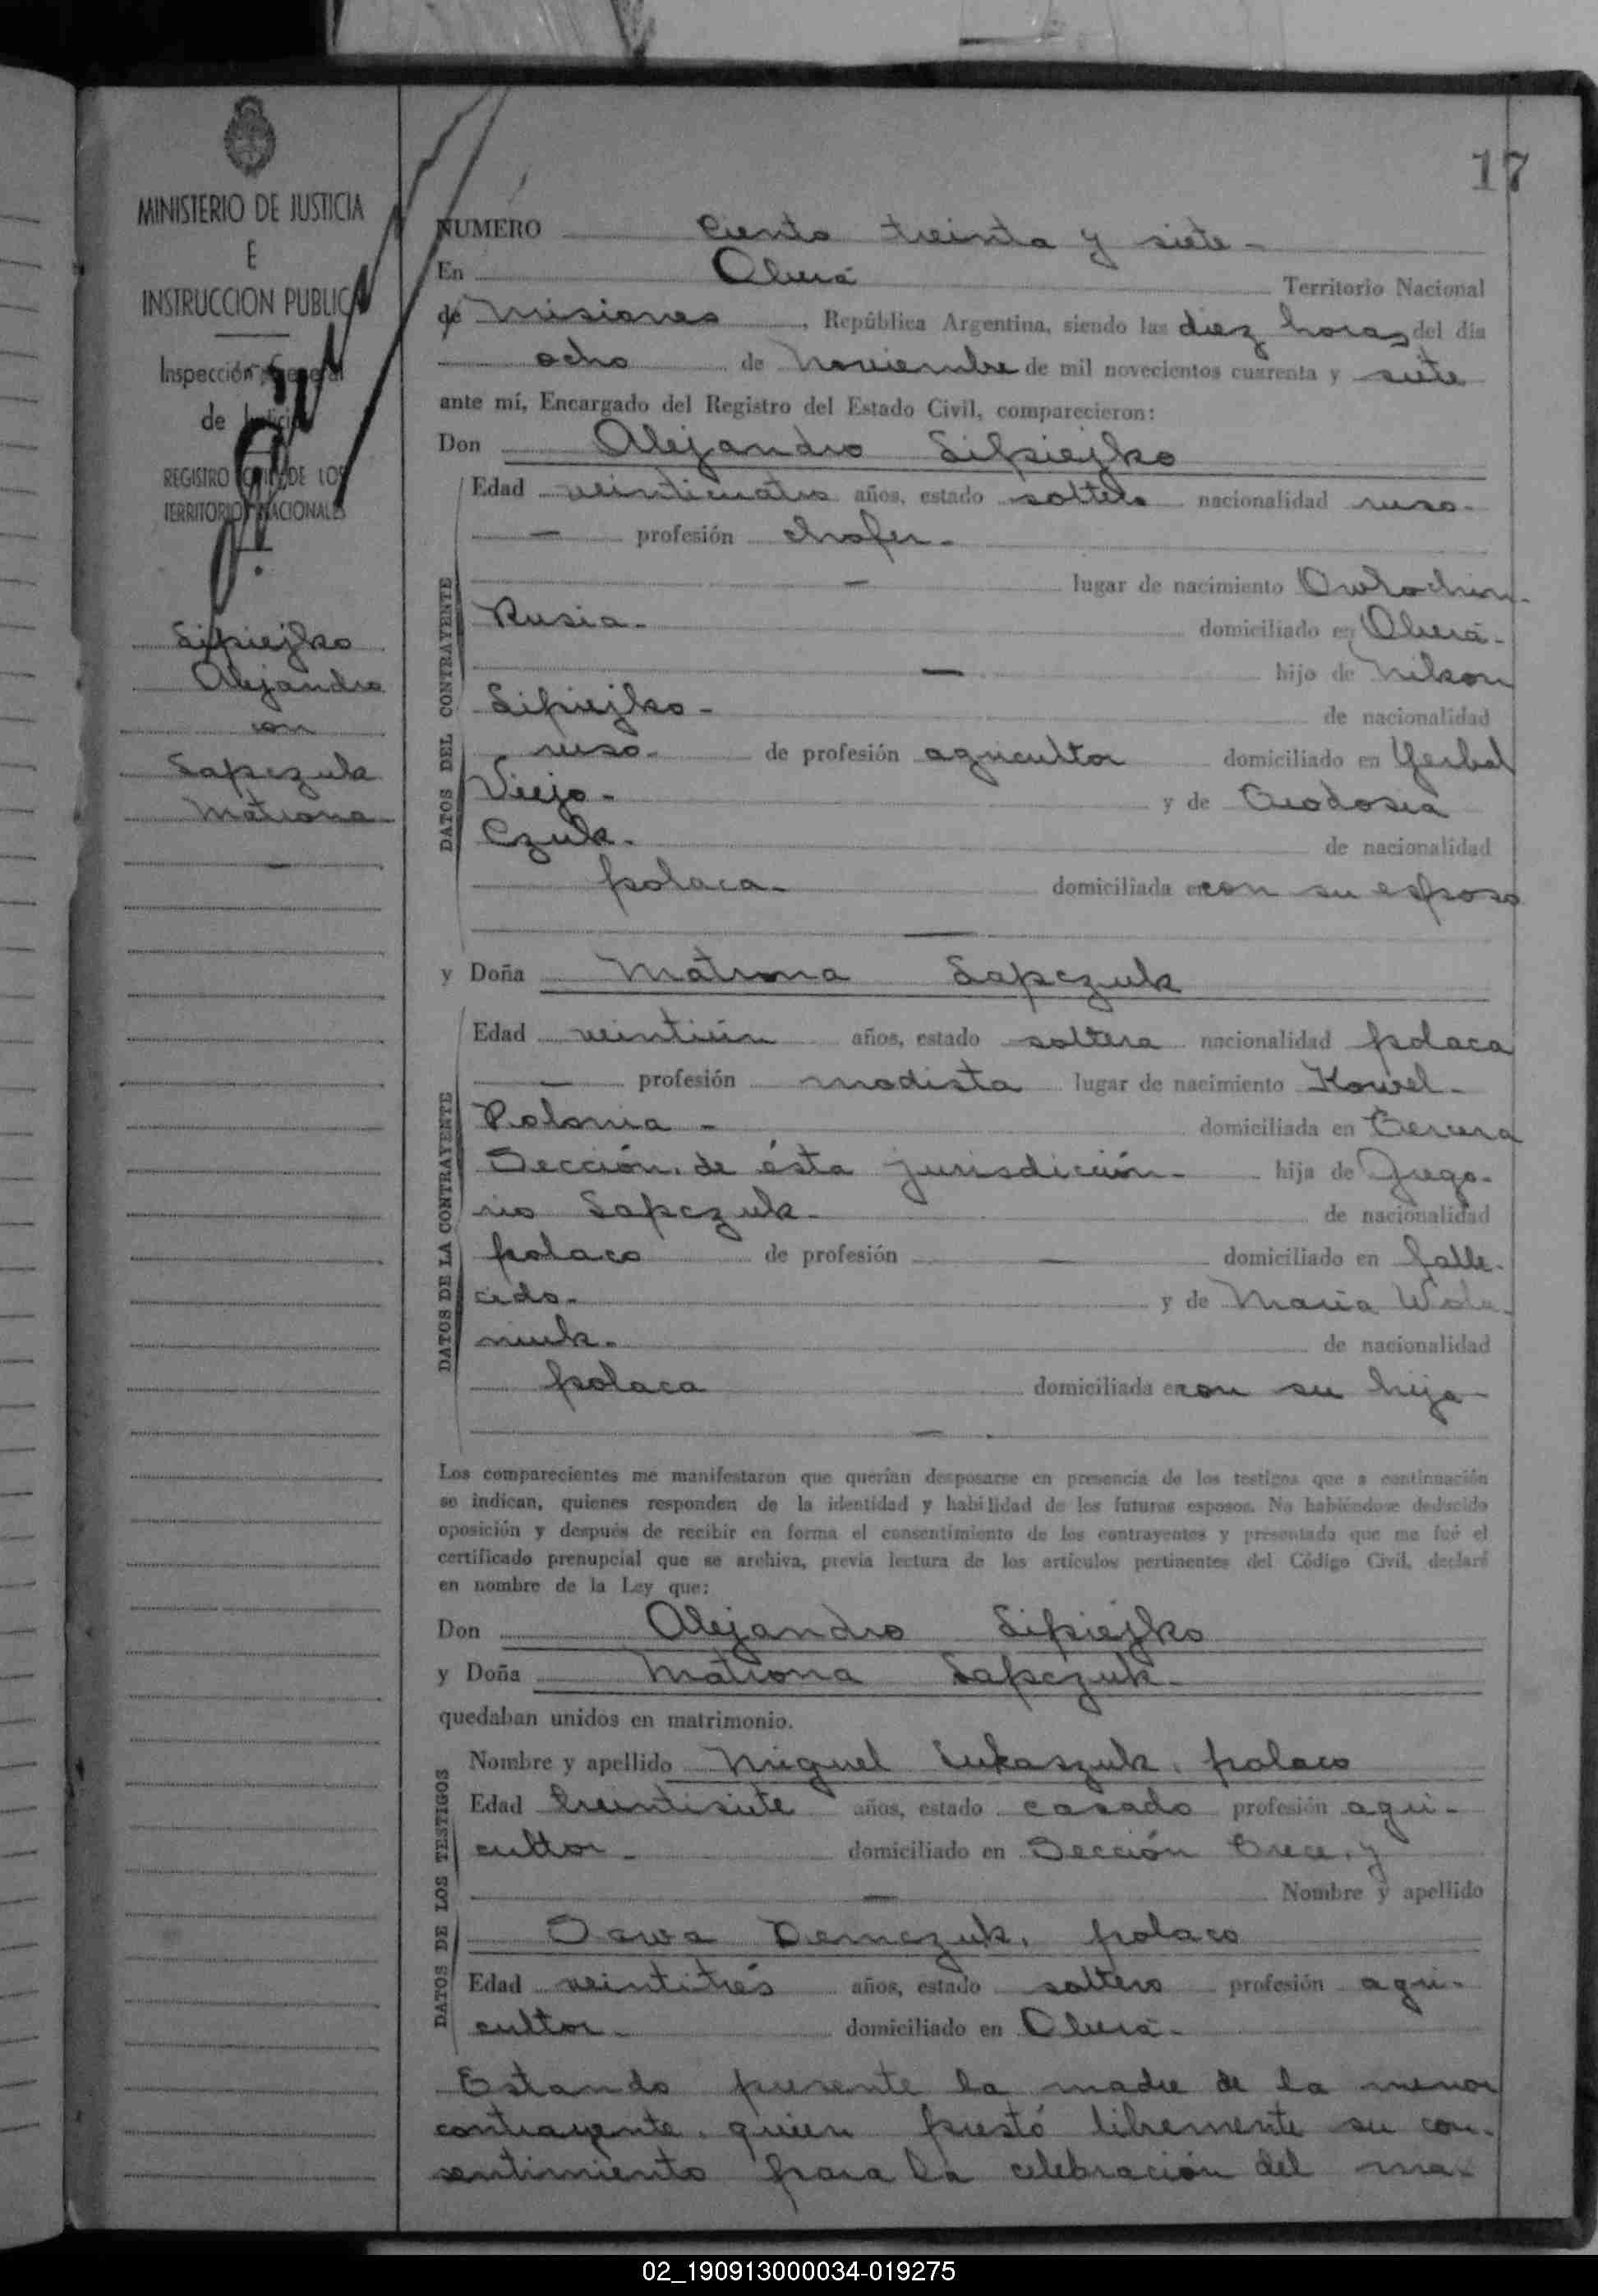 17
MINISTERIO DE JUSTICIA
E
INSTRUCCION PUBLICA
Inspección General
de Justicia
REGISTRO CIVIL DE LOS
TERRITORIOS NACIONALES
Lipiejko
Alejandro
con
Sapczuk
Matrona
NUMERO Ciento treinta y siete -
En Oberá Territorio Nacional
de Misiones, República Argentina, siendo las diez horas del día
ocho de Noviembre de mil novecientos cuarenta y siete
ante mí, Encargado del Registro del Estado Civil, comparecieron:
Don Alejandro Lipiejko
DATOS DEL CONTRAYENTE
Edad veinticuatro años, estado soltero nacionalidad ruso-
- profesión chofer-
- lugar de nacimiento
Rusia- domiciliado en Oberá-
- hijo de Nikon
Lipiejko- de nacionalidad
ruso- de profesión agricultor domiciliado en Yerbal
Viejo- y de Teodosia
Czuk- de nacionalidad
polaca- domiciliada en con su esposo
y Doña Matrona Sapczuk
DATOS DE LA CONTRAYENTE
Edad veintiún años, estado soltera nacionalidad polaca
- profesión modista lugar de nacimiento Kowel-
Polonia- domiciliada en Tercera
Sección, de ésta jurisdicción- hija de Grego-
rio Sapczuk- de nacionalidad
polaco de profesión - domiciliado en falle-
cido- y de María Wola-
niuk- de nacionalidad
polaca domiciliada en con su hija-
Los comparecientes me manifestaron que querían desposarse en presencia de los testigos que a continuación
se indican, quienes responden de la identidad y habilidad de los futuros esposos. No habiéndose deducido
oposición y después de recibir en forma el consentimiento de los contrayentes y presentado que me fué el
certificado prenupcial que se archiva, previa lectura de los artículos pertinentes del Código Civil, declaré
en nombre de la Ley que:
Don Alejandro Lipiejko
y Doña Matrona Sapczuk-
quedaban unidos en matrimonio.
DATOS DE LOS TESTIGOS
Nombre y apellido Miguel Lukaszuk, polaco
Edad treintisiete años, estado casado profesión agri-
cultor- domiciliado en Sección Trece, y
- Nombre y apellido
Sawa Demczuk, polaco
Edad veintitrés años, estado soltero profesión agri-
cultor- domiciliado en Oberá-
Estando presente la madre de la menor
contrayente, quien prestó libremente su con-
sentimiento para la celebración del ma-
02_190913000034-019275